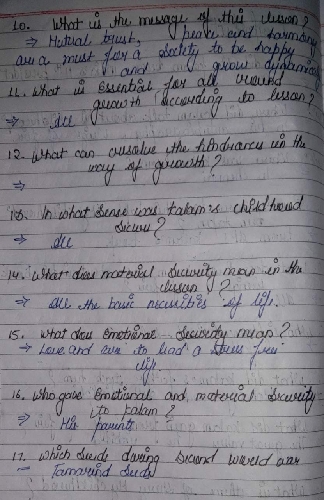 10. What is the message of this lesson?
⇒ Mutual trust, peace and harmony
are a must for a society to be happy
and grow dynamically
11. What is essential for all round
growth according to lesson?
⇒ All
12. What can resolve the hindrances in the
way of growth?
⇒
13. In what sense was Kalam's childhood
secure?
⇒ All
14. What does material security mean in the
lesson?
⇒ All the basic necessities of life.
15. What does Emotional Security mean?
⇒ Love and care to lead a stress free
life
16. Who gave Emotional and material security
to Kalam?
⇒ His parents
17. Which seeds during second world war
⇒ Tamarind seeds